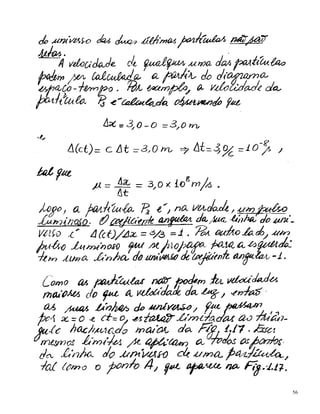 do universo das duas últimas partículas não são
retas.
A velocidade de qualquer uma das partículas
podem ser calculada a partir do diagrama
espaço-tempo. Por exemplo, a velocidade da
partícula P₃ é calculada observando que
Δx = 3,0 - 0 = 3,0 m
e
Δ(ct) = c Δt = 3,0 m ⇒ Δt = 3,0/c = 10⁻⁸ s ,
tal que
u = Δx/Δt = 3,0 x 10⁸ m/s .
Logo, a partícula P₃ é, na verdade, um pulso
luminoso. O coeficiente angular da sua linha do uni-
verso é Δ(ct)/Δx = 3/3 = 1. Por outro lado, um
pulso luminoso que se propaga para a esquerda
tem uma linha do universo de coeficiente angular -1.
Como as partículas não podem ter velocidades
maiores do que a velocidade da luz, então
as suas linhas do universo, que passam
por x = 0 e ct = 0, estarão limitadas ao triân-
gulo hachureado maior da Fig. 1.17. Esses
mesmos limites se aplicam a todos os pontos
da linha do universo de uma partícula,
tal como o ponto A, que aparece na Fig. 1.17.
56